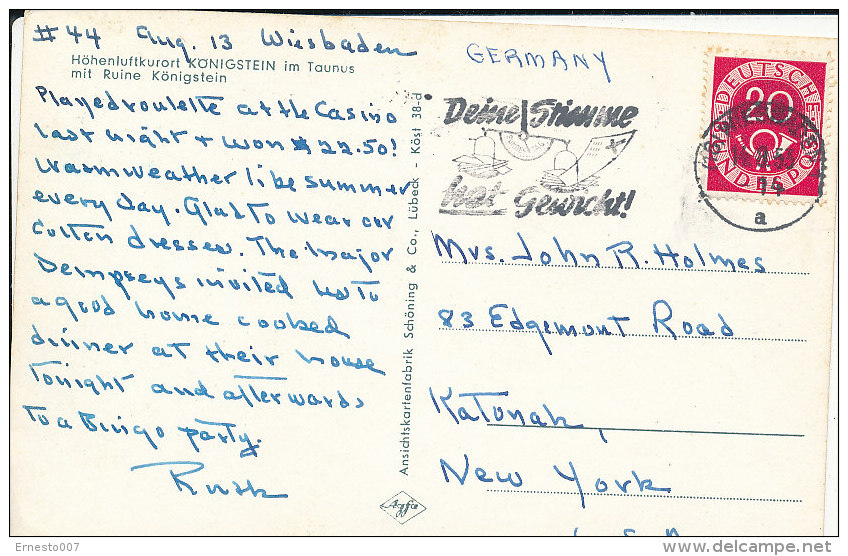 #44 Aug. 13 Wiesbaden
Höhenluftkurort KÖNIGSTEIN im Taunus
mit Ruine Königstein
Played roulette at the Casino
last night + won $22.50!
Warm weather like summer
every day. Glad to wear our
cotton dresses. The Major
Dempseys invited us to
a good home cooked
dinner at their house
tonight and afterwards
to a Bingo party.
Ruth
Ansichtskartenfabrik Schöning & Co., Lübeck - Köst 38-d
Agfa
GERMANY
Deine Stimme
hat Gewicht!
DEUTSCHE
BUNDESPOST
20
a
Mrs. John R. Holmes
83 Edgemont Road
Katonah,
New York
U.S.A.
Ernesto007
delcampe.net